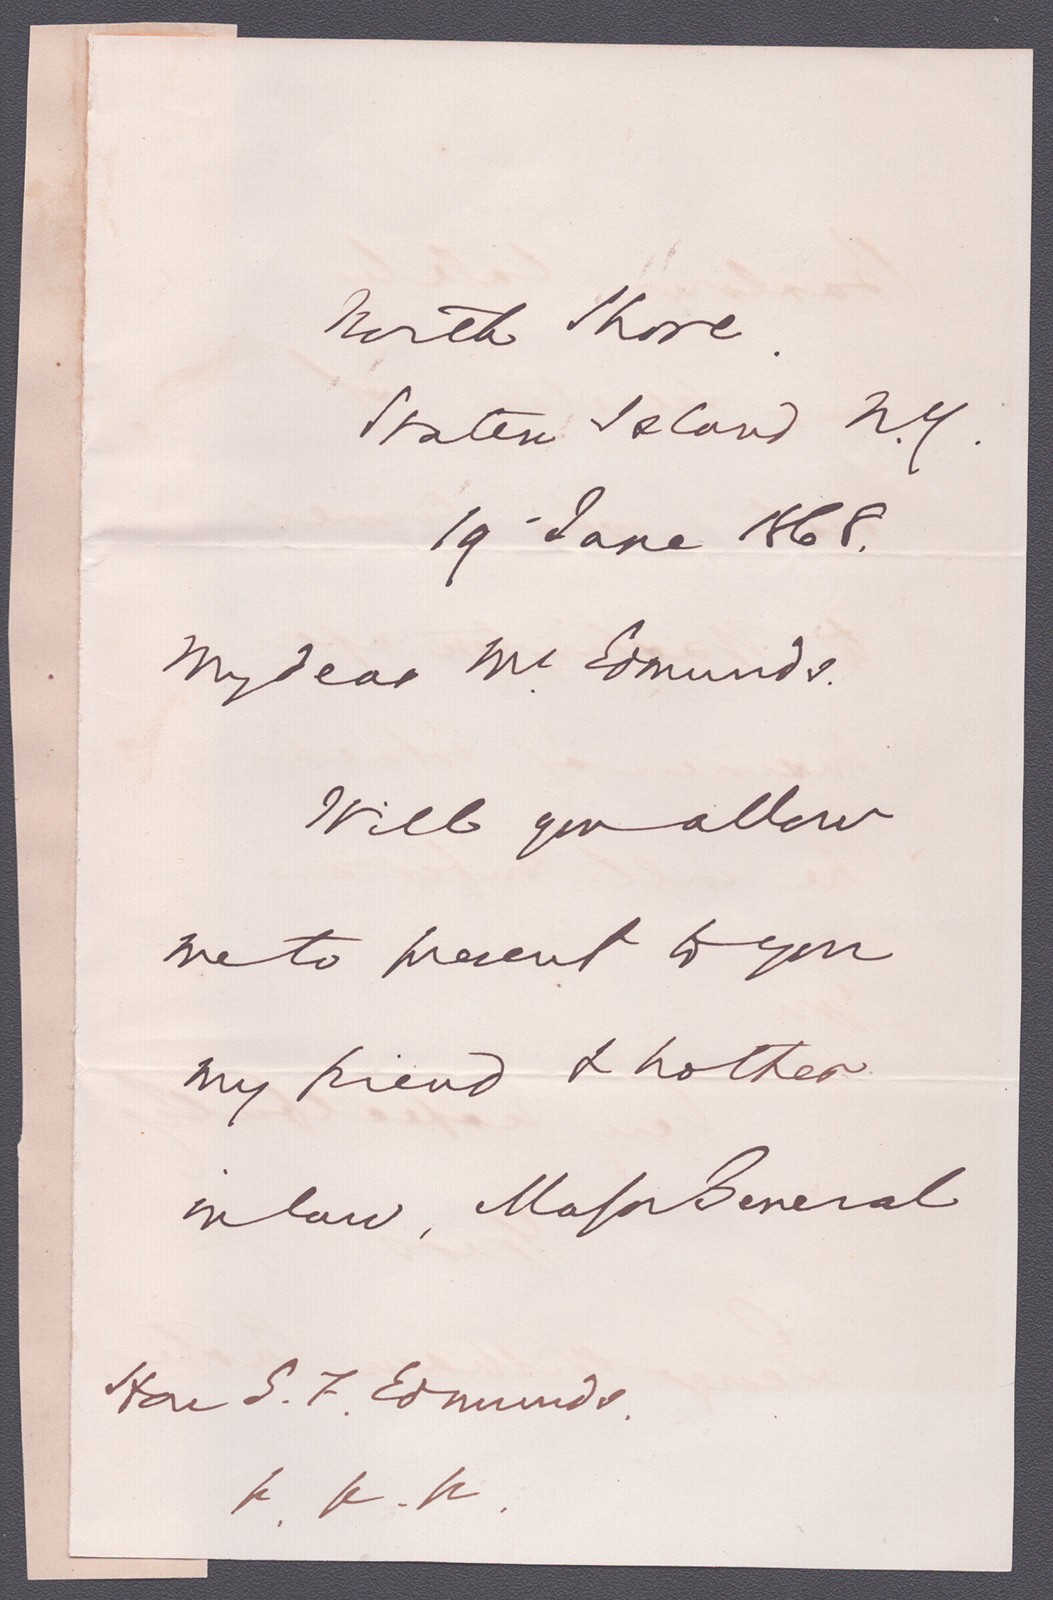 North Shore.
Staten Island N.Y.
19 June 1868.
My dear Mr. Edmunds.
Will you allow
me to present to you
my friend & brother
in law, Major General
Hon G. F. Edmunds.